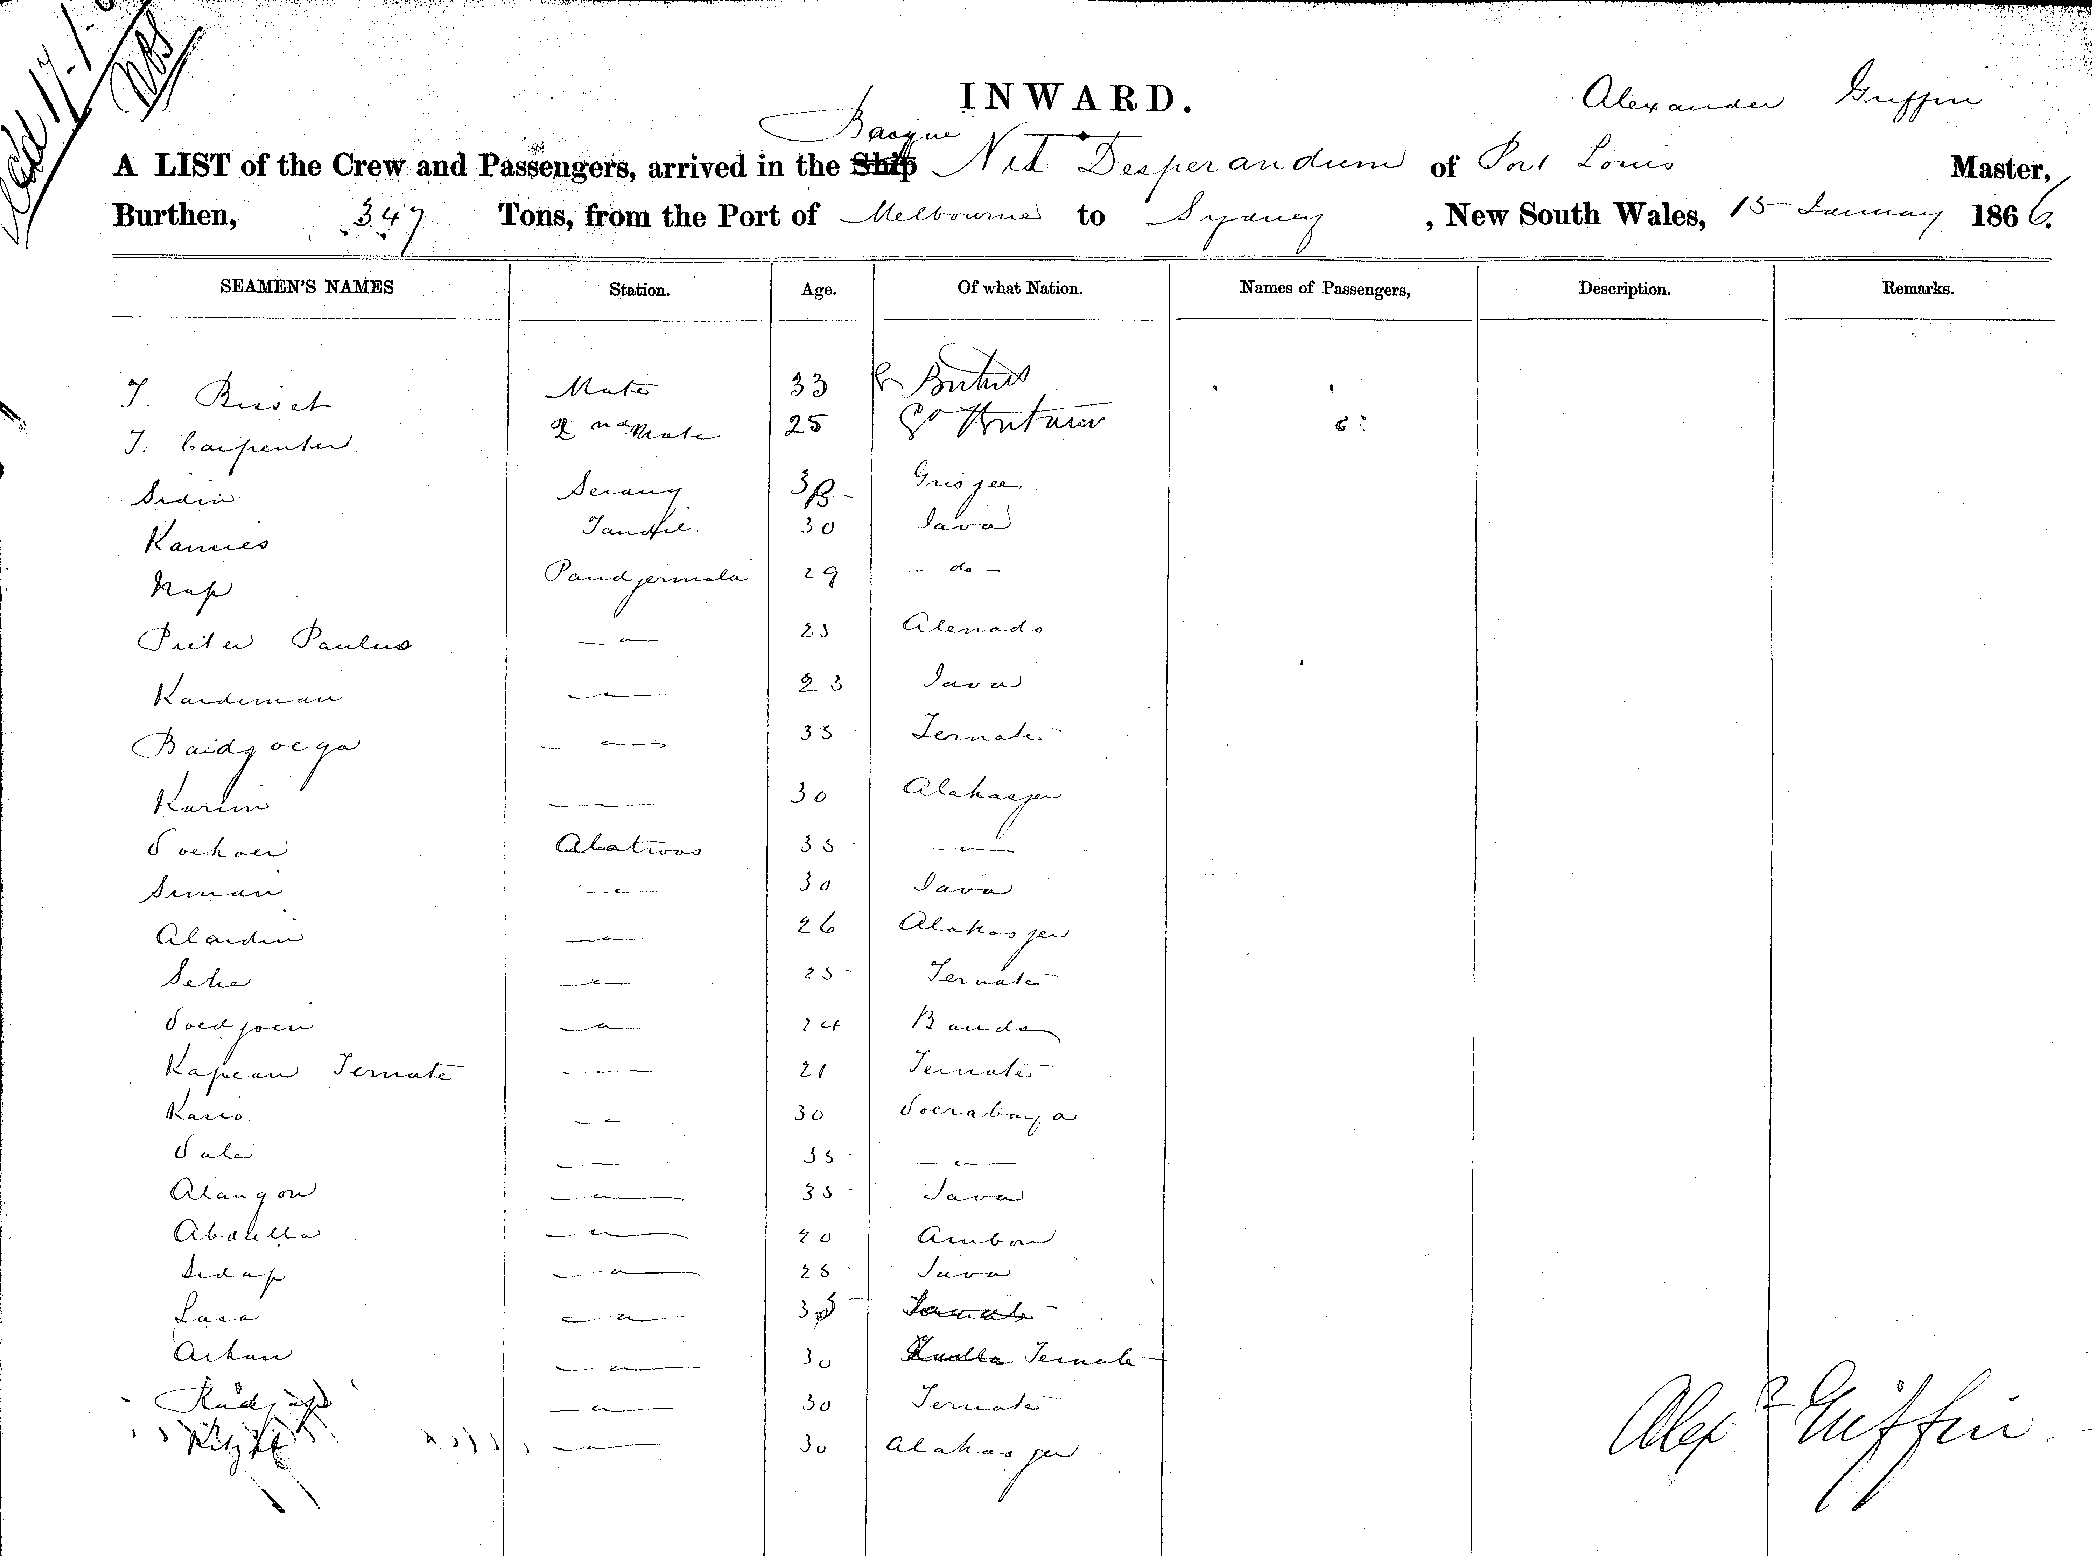 INWARD.
Alexander Griffin
Barque
A LIST of the Crew and Passengers, arrived in the Ship Nil Desperandum of Port Louis Master,
Burthen, 347 Tons, from the Port of Melbourne to Sydney, New South Wales, 15 January 1866.
SEAMEN'S NAMES Station. Age. Of what Nation. Names of Passengers, Description. Remarks.
Mate 33
T. Carpenter 2nd Mate 25
Sidin Serang Grisjee
Kamies Tandil 30 Java
Nap Pandjermala 29 - do -
Pieter Paulus 25 Menado
Kardiman 23 Java
Baidjoega 35 Ternate
Karim 30 Makasjer
Soehoer Matroos 35
Siman 30 Java
Alardin 26 Makasjer
Sehe 25 Ternate
Soedjoen 24 Banda
Kapean Ternate 21 Ternate
Kario 30 Soerabaya
Sale 35
Mangon 35 Java
Abdulla 20 Ambon
Sidap 25 Java
Lasa Ternate
Arkan 30 Ternate
Radjap 30 Ternate
30 Makasjer
Alexr Griffin